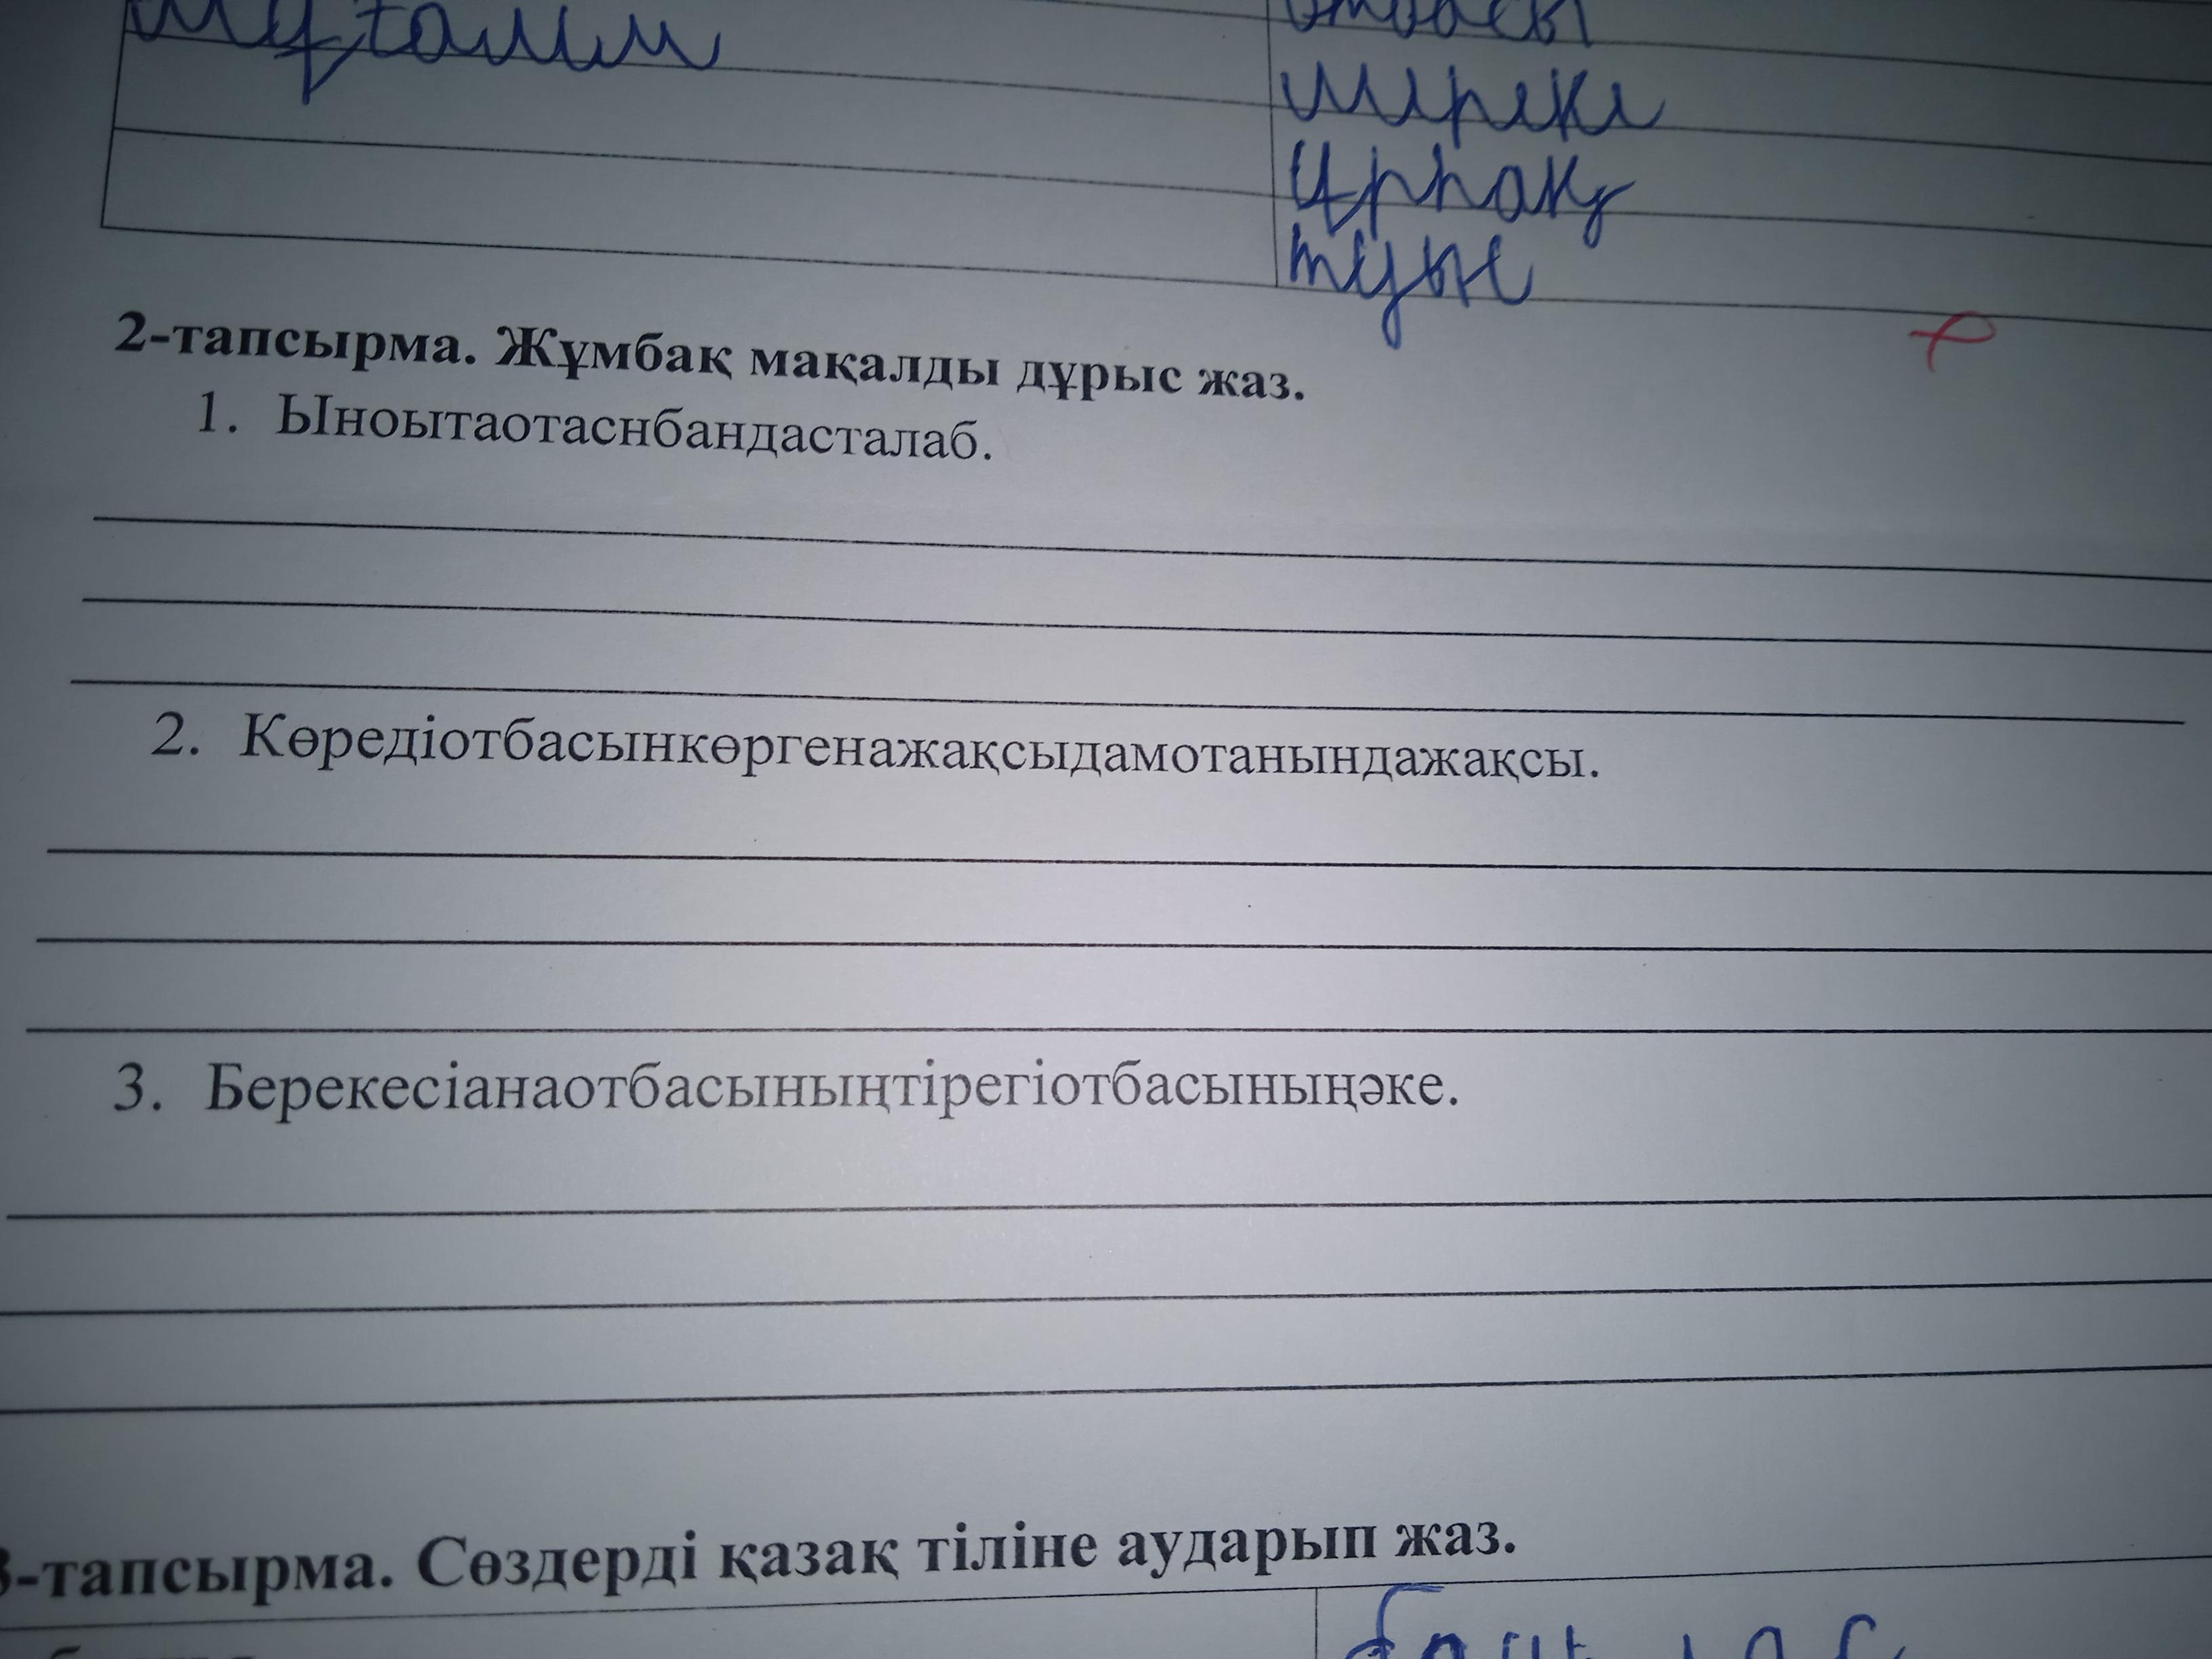 шіреке
ұрпақ
туыс
2-тапсырма. Жұмбақ мақалды дұрыс жаз.
1. Ыноытаотаснбандасталаб.
2. Көредіотбасынкөргенажақсыдамотанындажақсы.
3. Берекесіанаотбасыныңтірегіотбасыныңәке.
3-тапсырма. Сөздерді қазақ тіліне аударып жаз.